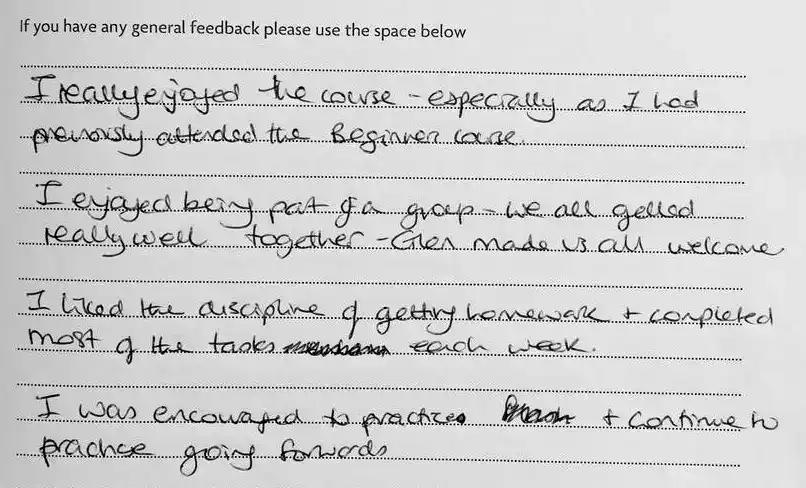 If you have any general feedback please use the space below
I really enjoyed the course - especially as I had
previously attended the Beginner course.
I enjoyed being part of a group - we all gelled
really well together - Glen made us all welcome
I liked the discipline of getting homework + completed
most of the tasks each week.
I was encouraged to practice + continue to
practice going forwards